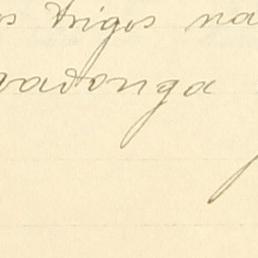 os trigos na
vadonga